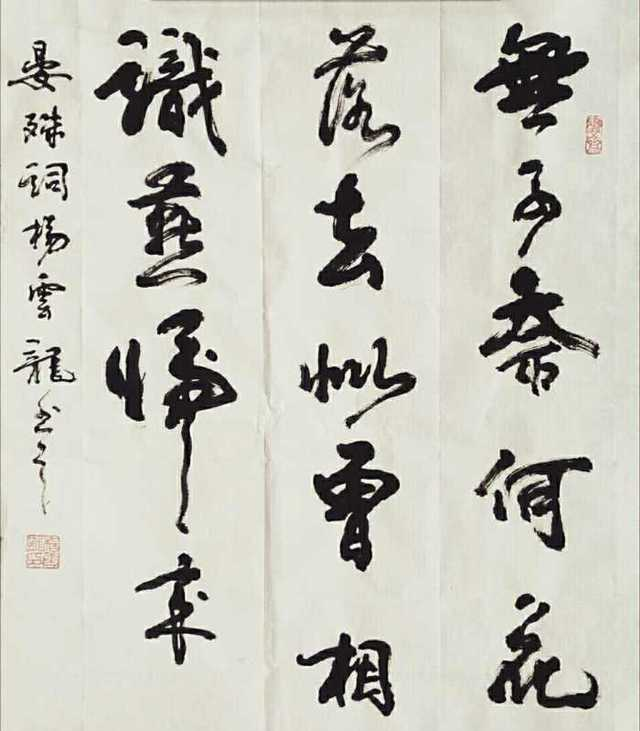 無可奈何花
落去似曾相
識燕歸來
晏殊詞楊雲龍書之